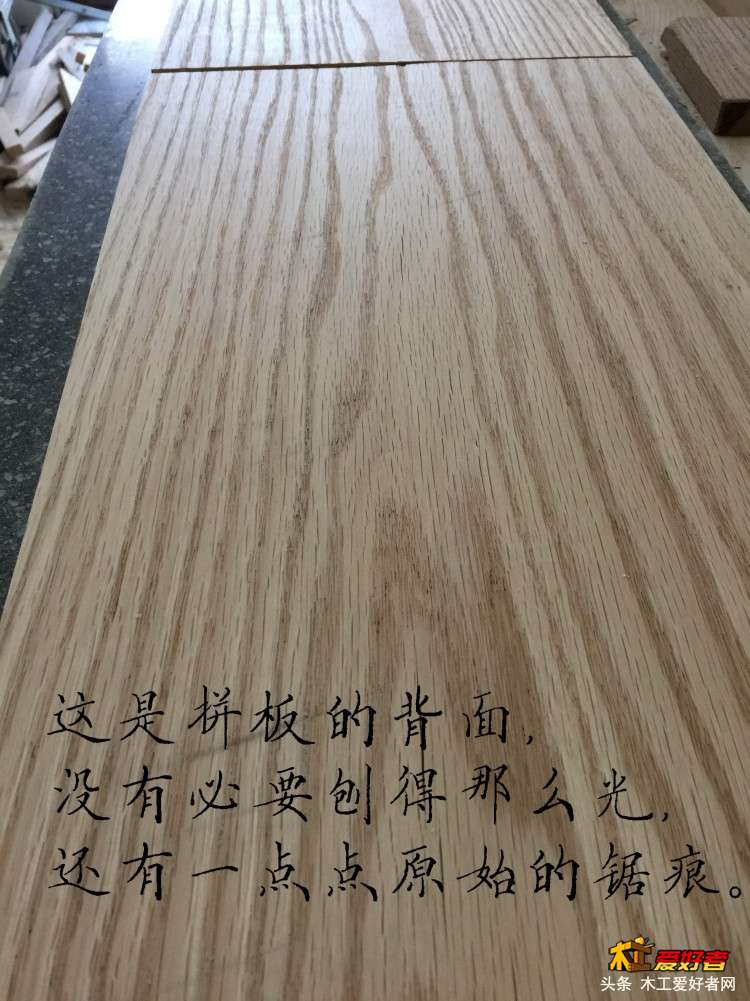 这是拼板的背面，
没有必要刨得那么光，
还有一点点原始的锯痕。
木工爱好者
头条 木工爱好者网